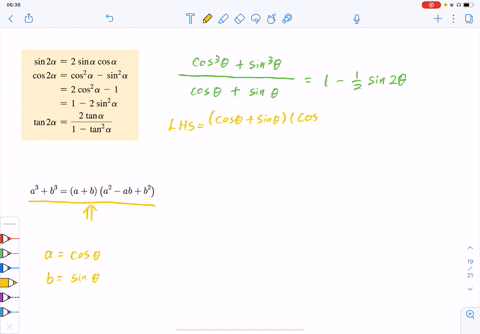 06:36
sin 2α = 2 sin α cos α
cos 2α = cos²α − sin²α
= 2 cos²α − 1
= 1 − 2 sin²α
tan 2α = 2 tan α / 1 − tan²α
cos³θ + sin³θ / cosθ + sin θ = 1 − 1/2 sin 2θ
LHS = (cosθ + sinθ)(cos
a³ + b³ = (a + b)(a² − ab + b²)
a = cosθ
b = sin θ
19
/
21